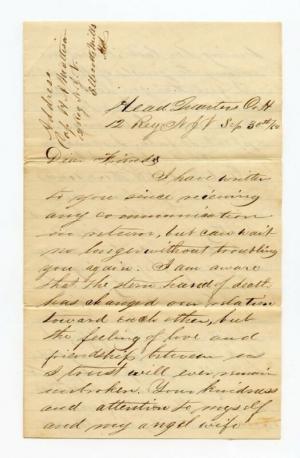 Address
Cap H A Mattison
12 Reg N.J.V.
Ellicotts Mills
Md
Head Quarters Co H
12 Reg N J V Sep 30th/62
Dear Friends
I have written
to you since receiving
any communication
in return, but can wait
no longer without troubling
you again. I am aware
that the stern hand of death
has changed our relation
toward each other, but
the feeling of love and
friendship between us
I trust will ever remain
unbroken. Your kindness
and attention to myself
and my angel wife